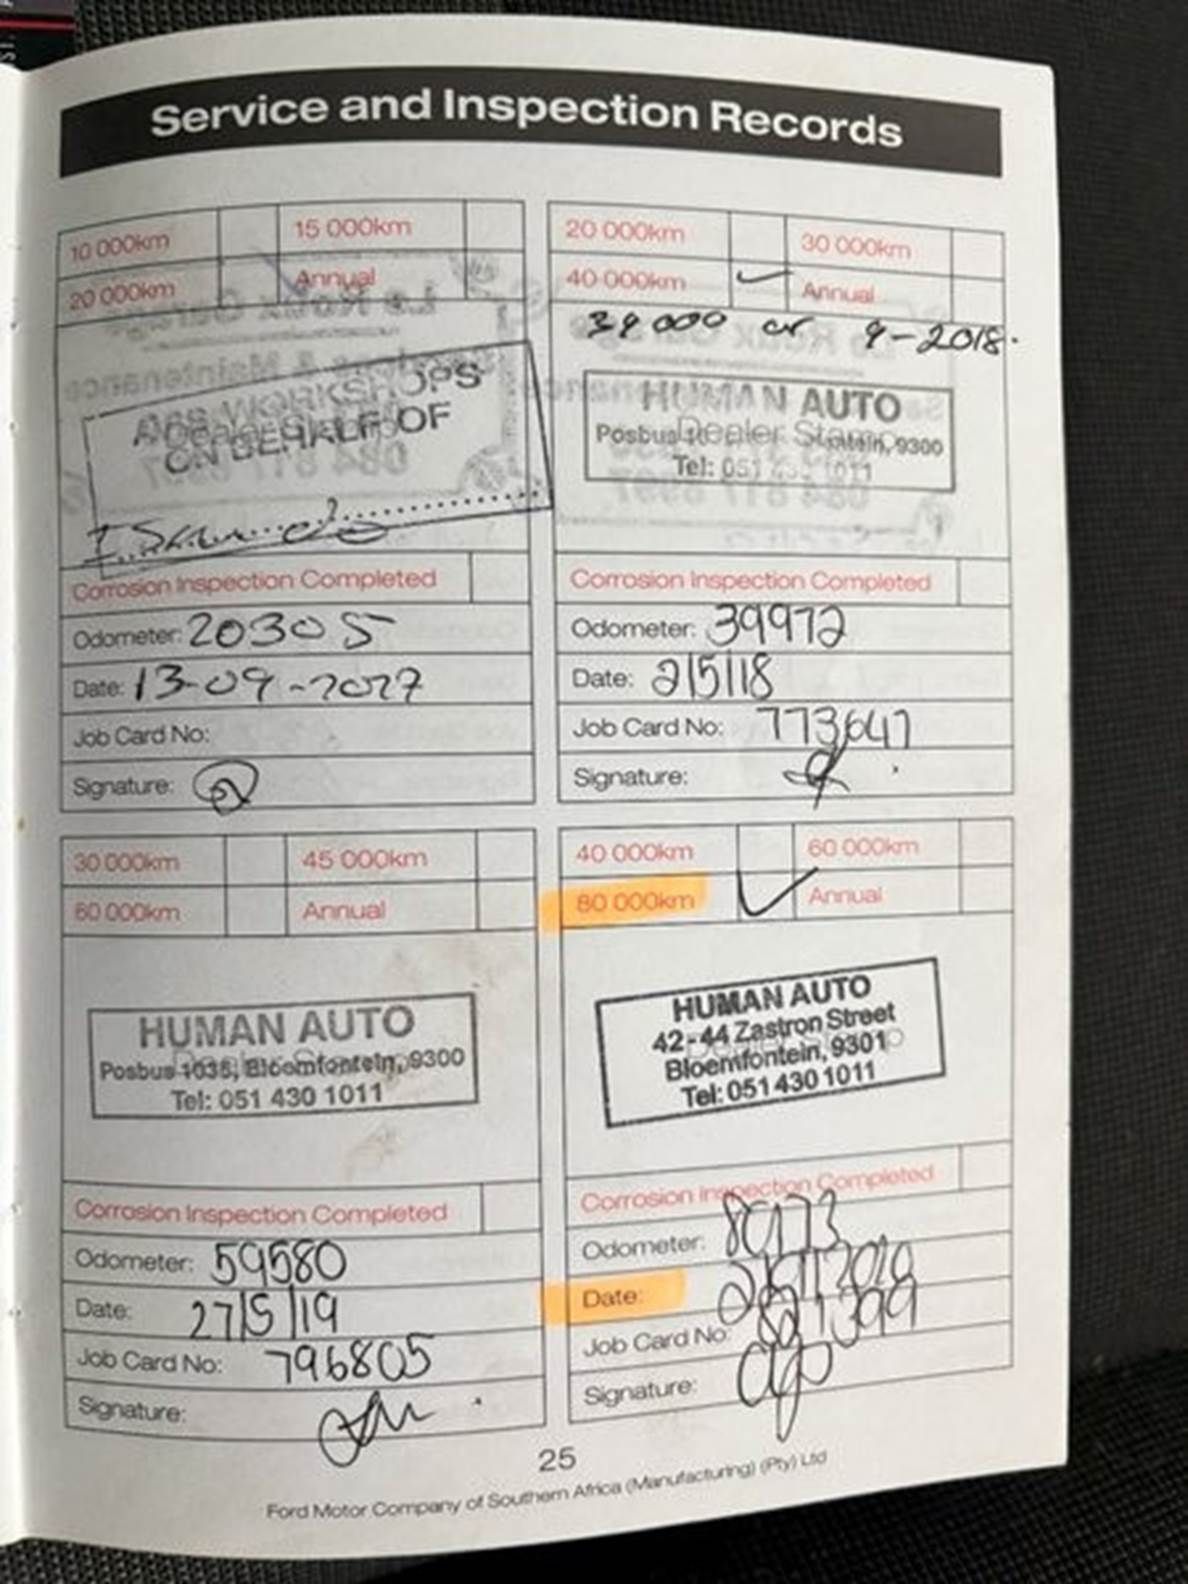 Service and Inspection Records
10 000km 15 000km
20 000km Annual
WORKSHOPS
ON BEHALF OF
Corrosion Inspection Completed
Odometer: 20305
Date: 13-09-2017
Job Card No:
Signature:
20 000km 30 000km
40 000km Annual
39 000 or 9-2018.
HUMAN AUTO
Dealer Stamp
Posbus 9300
Tel: 051 1011
Corrosion Inspection Completed
Odometer: 39972
Date: 2/5/18
Job Card No: 773647
Signature:
30 000km 45 000km
60 000km Annual
HUMAN AUTO
Posbus 1035, Bloemfontein, 9300
Tel: 051 430 1011
Corrosion Inspection Completed
Odometer: 59580
Date: 27/5/19
Job Card No: 796805
Signature:
40 000km 60 000km
80 000km Annual
HUMAN AUTO
42-44 Zastron Street
Bloemfontein, 9301
Tel: 051 430 1011
Corrosion Inspection Completed
Odometer: 80173
Date:
Job Card No: 821399
Signature:
25
Ford Motor Company of Southern Africa (Manufacturing) (Pty) Ltd